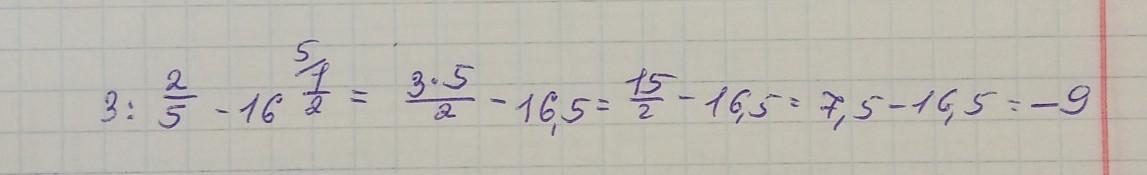 3 : 2/5 - 16 5/ 1/2 = 3·5/2 - 16,5 = 15/2 - 16,5 = 7,5 - 16,5 = -9